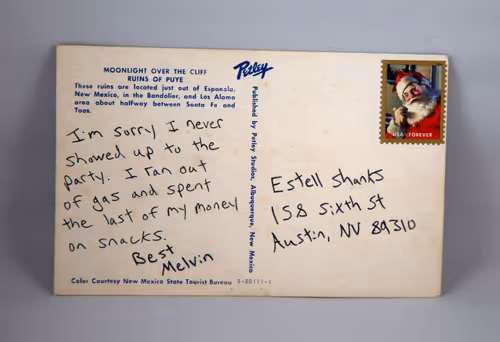 MOONLIGHT OVER THE CLIFF
RUINS OF PUYE
These ruins are located just out of Espanola,
New Mexico, in the Bandolier, and Los Alamo
area about halfway between Santa Fe and
Taos.
I'm sorry I never
showed up to the
party. I ran out
of gas and spent
the last of my money
on snacks.
Best
Melvin
Color Courtesy New Mexico State Tourist Bureau S-30111-1
Petley
Published by Petley Studios, Albuquerque, New Mexico
USA FOREVER
Estell Shanks
158 Sixth St
Austin, NV 89310